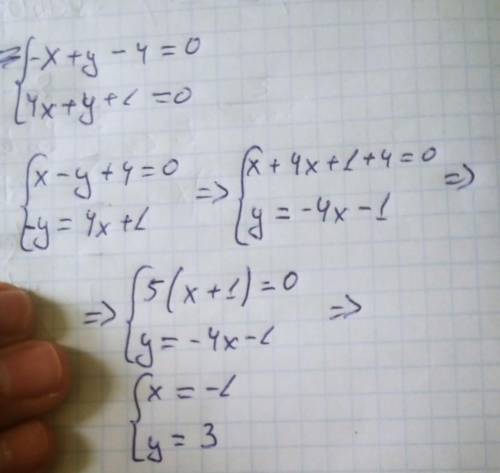 = { -x + y - 4 = 0
4x + y + 1 = 0
{ x - y + 4 = 0 => { x + 4x + 1 + 4 = 0 =>
-y = 4x + 1 y = -4x - 1
=> { 5(x + 1) = 0 =>
y = -4x - 1
{ x = -1
y = 3